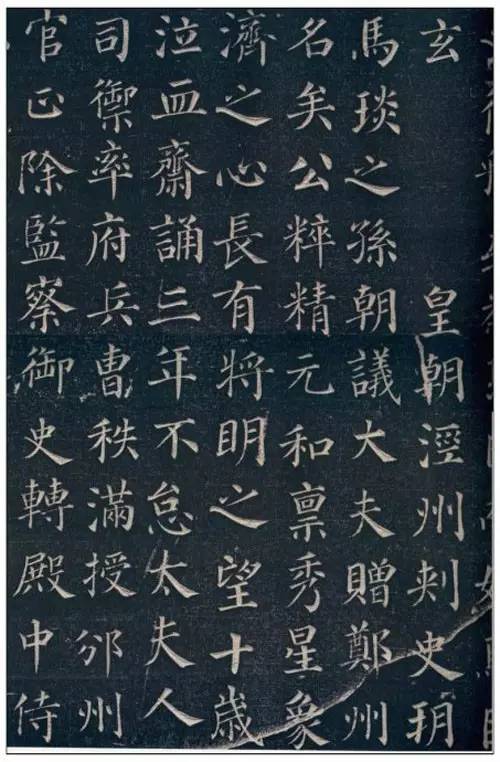 玄 皇朝涇州刾史玥
馬琰之孫朝議大夫贈鄭州
名矣公粹精元和禀秀星象
濟之心長有將眀之望十歲
泣血齋誦三年不怠太夫人
司禦率府兵曹秩滿授邠州
官正除監察御史轉殿中侍